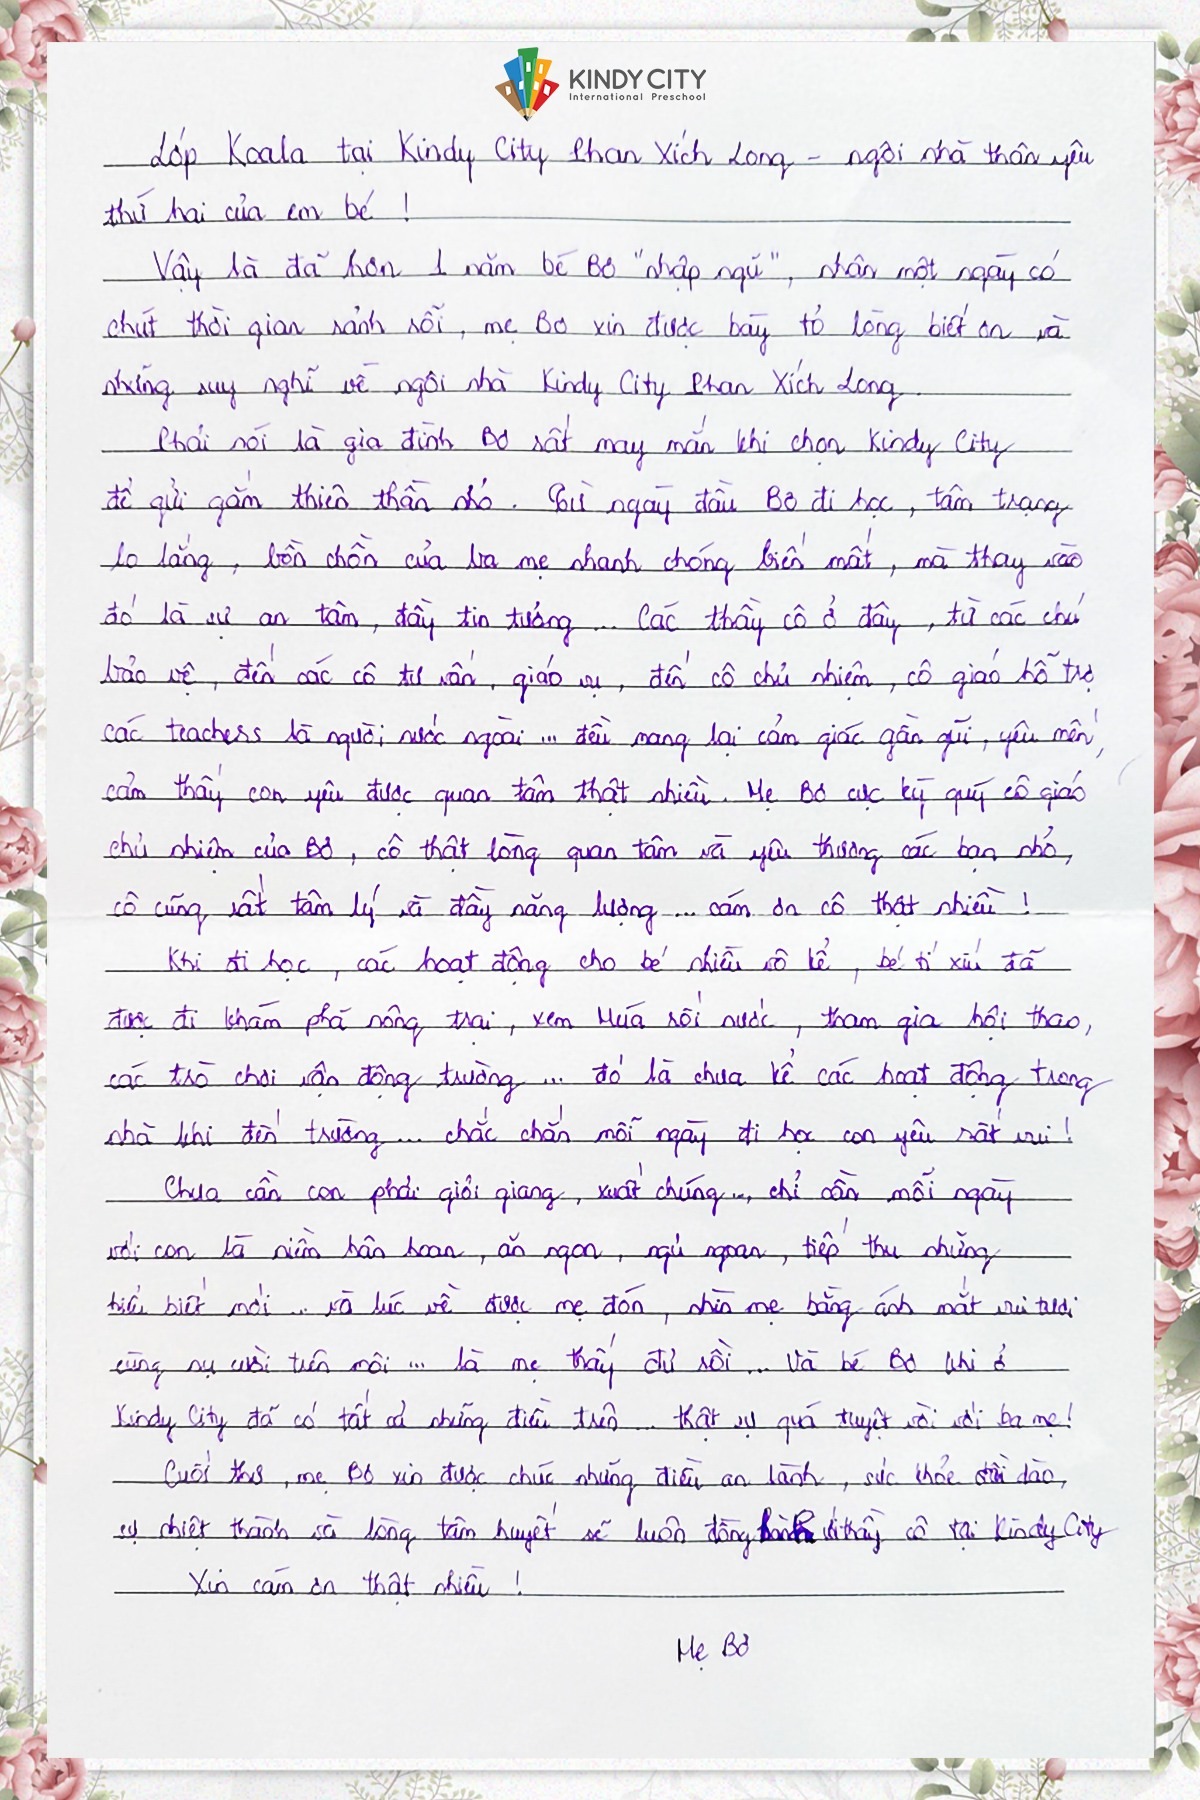 KINDY CITY
International Preschool
Lớp Koala tại Kindy City Phan Xích Long - ngôi nhà thân yêu
thứ hai của em bé !
Vậy là đã hơn 1 năm bé Bơ "nhập ngũ", nhân một ngày có
chút thời gian rảnh rỗi, mẹ Bơ xin được bày tỏ lòng biết ơn và
những suy nghĩ về ngôi nhà Kindy City Phan Xích Long.
Phải nói là gia đình Bơ rất may mắn khi chọn Kindy City
để gửi gắm thiên thần nhỏ. Từ ngày đầu Bơ đi học, tâm trạng
lo lắng, bồn chồn của ba mẹ nhanh chóng biến mất, mà thay vào
đó là sự an tâm, đầy tin tưởng... Các thầy cô ở đây, từ các chú
bảo vệ, đến các cô tư vấn, giáo vụ, đến cô chủ nhiệm, cô giáo hỗ trợ
các teachers là người nước ngoài... đều mang lại cảm giác gần gũi, yêu mến,
cảm thấy con yêu được quan tâm thật nhiều. Mẹ Bơ cực kỳ quý cô giáo
chủ nhiệm của Bơ, cô thật lòng quan tâm và yêu thương các bạn nhỏ,
cô cũng rất tâm lý và đầy năng lượng... cám ơn cô thật nhiều !
Khi đi học, các hoạt động cho bé nhiều vô kể, bé tí xíu đã
được đi khám phá nông trại, xem Múa rối nước, tham gia hội thao,
các trò chơi vận động trường... đó là chưa kể các hoạt động trong
nhà khi đến trường... chắc chắn mỗi ngày đi học con yêu rất vui !
Chưa cần con phải giỏi giang, xuất chúng..., chỉ cần mỗi ngày
với con là niềm hân hoan, ăn ngon, ngủ ngoan, tiếp thu những
hiểu biết mới... và lúc về được mẹ đón, nhìn mẹ bằng ánh mắt vui tươi
cùng nụ cười trên môi... là mẹ thấy đủ rồi... Và bé Bơ khi ở
Kindy City đã có tất cả những điều trên... thật sự quá tuyệt vời với ba mẹ !
Cuối thư, mẹ Bơ xin được chúc những điều an lành, sức khỏe dồi dào,
sự nhiệt thành và lòng tâm huyết sẽ luôn đồng hành với thầy cô tại Kindy City
Xin cám ơn thật nhiều !
Mẹ Bơ